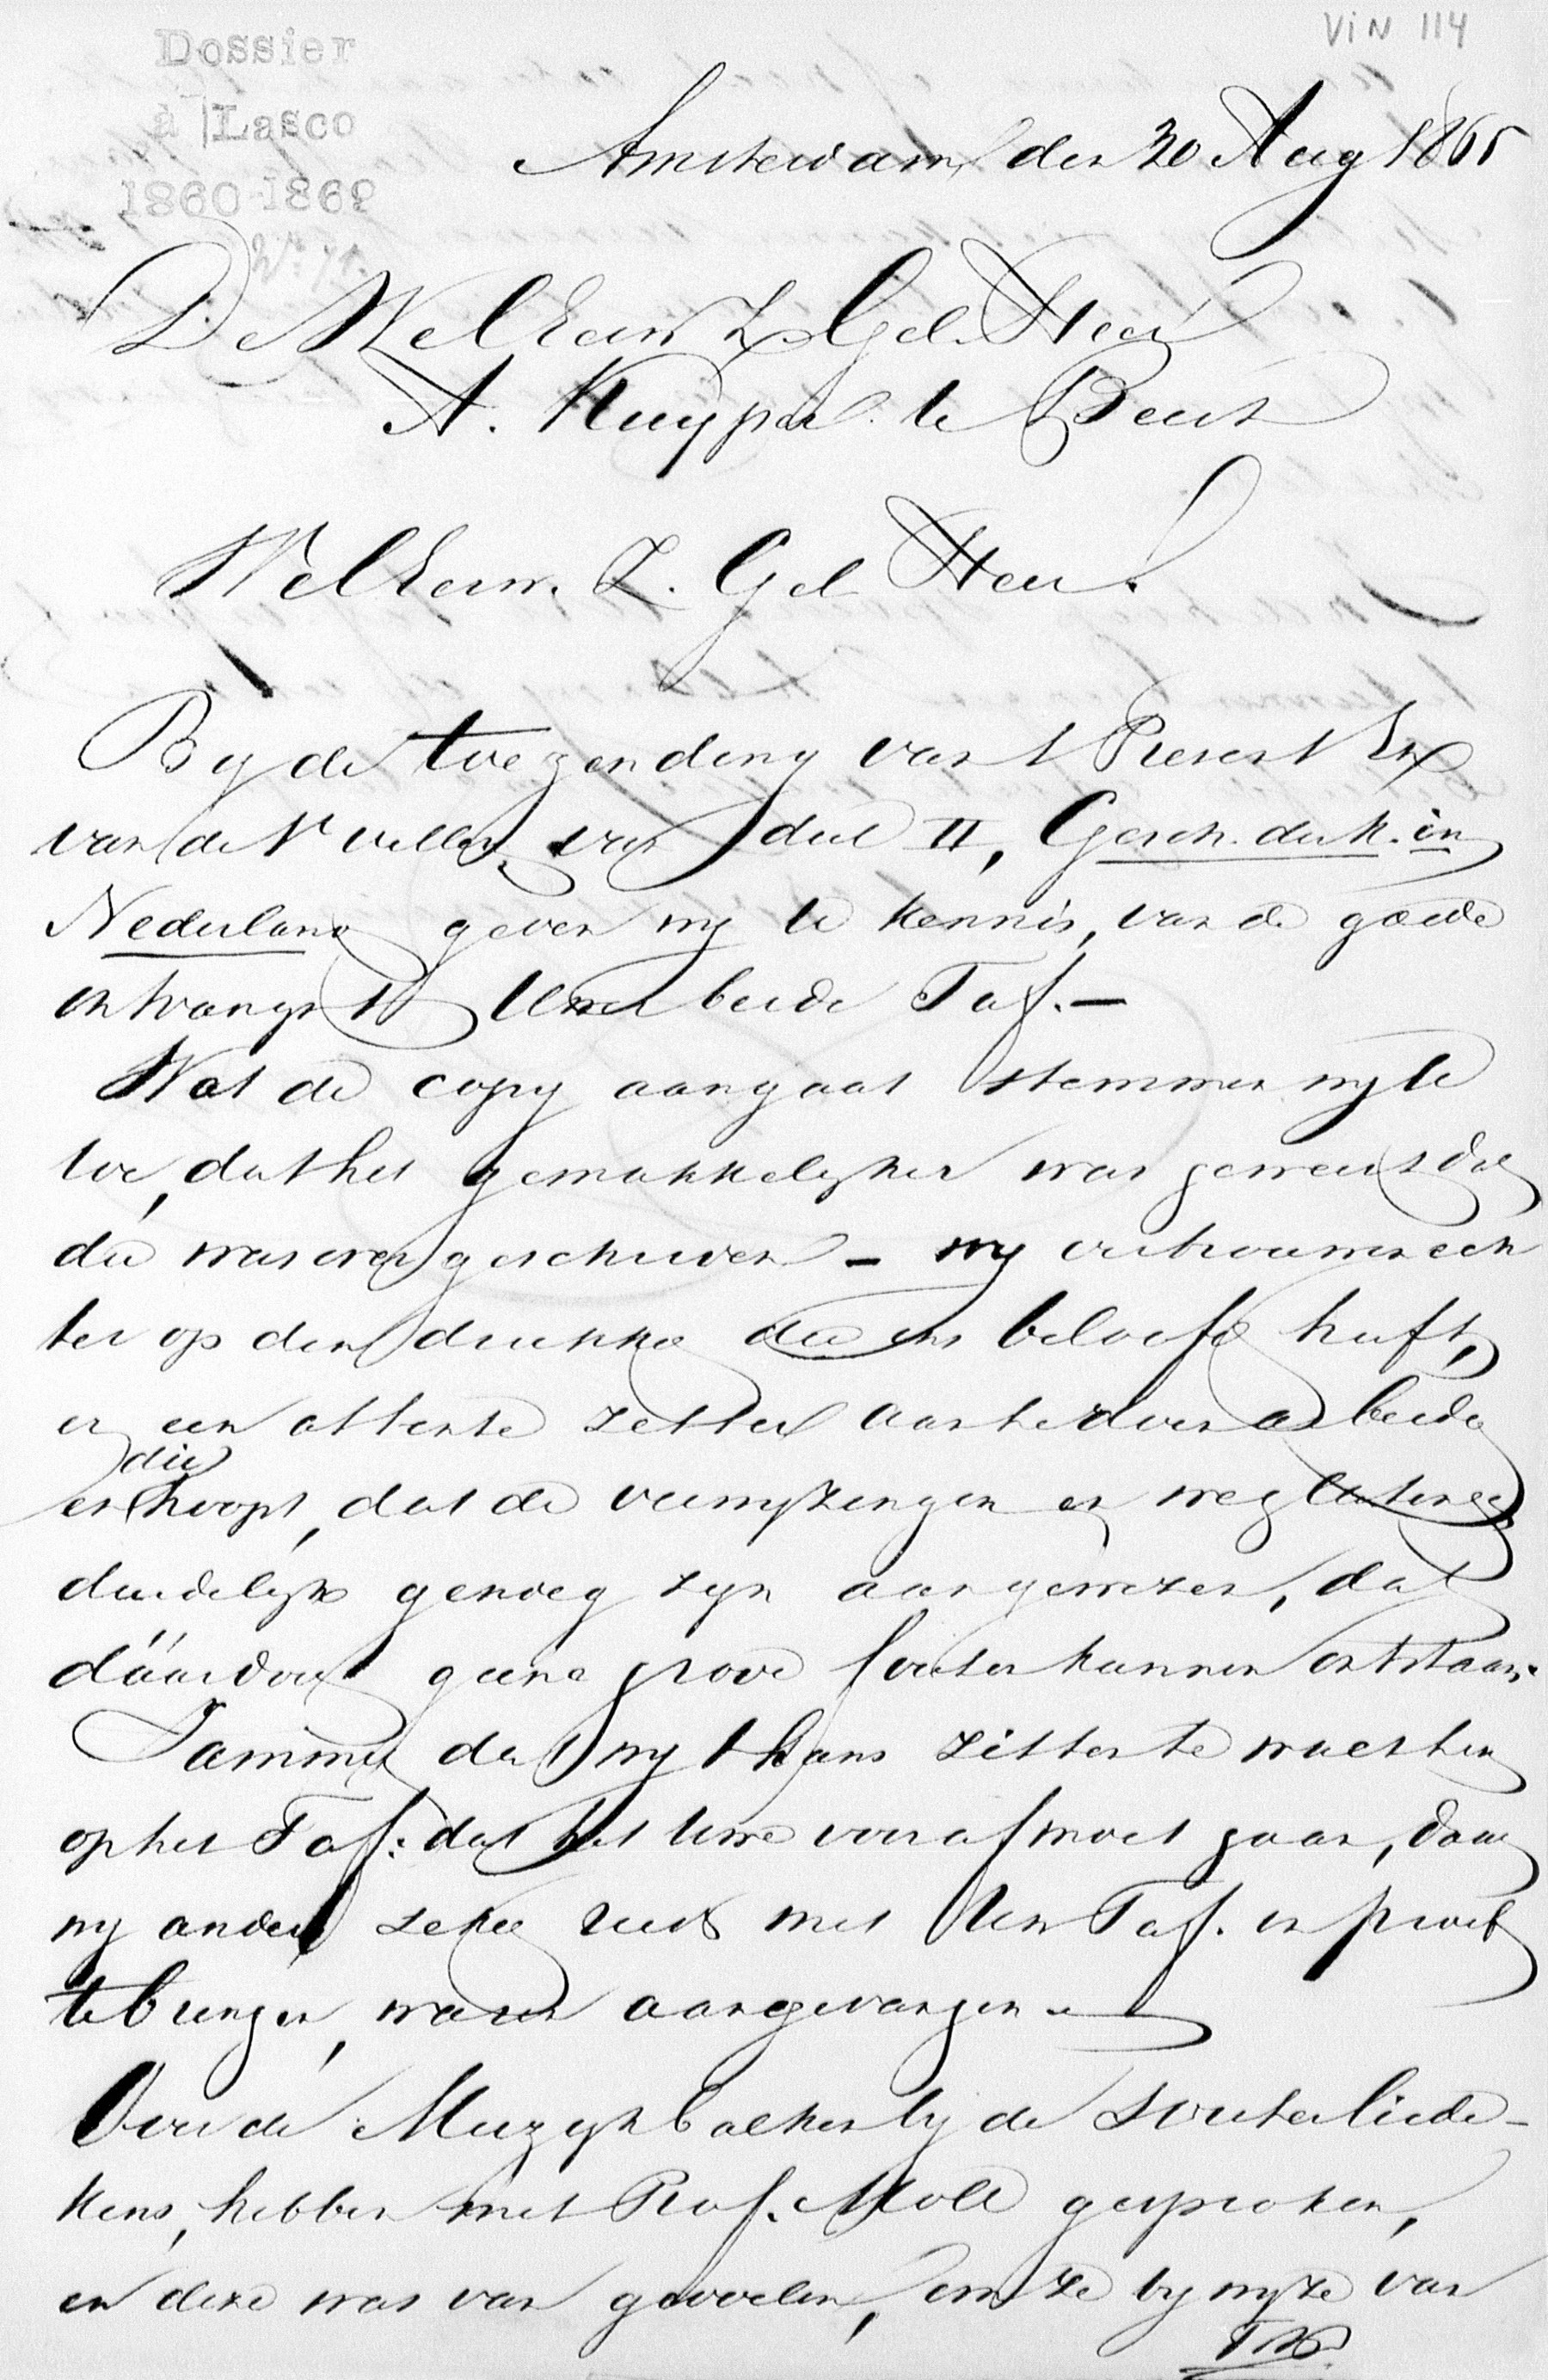 VIN 114
Dossier
à Lasco
1860-1862
Amsterdam den 30 Aug 1865
De WelEerw. Z. Gel. Heer
A. Kuyper te Beest
WelEerw. Z. Gel Heer!
By de toezending van 't Present Ex
van de 1e vellen van deel II, Gesch. der K. in
Nederland geven wy te kennis, van de goede
ontvangst Uwer beide Taf. —
Wat de copy aangaat stemmen wy te
toe, dat het gemakkelyker was geweest dat
die was overgeschreven – wy vertrouwen ech
ter op den drukker die ons beloofd heeft,
er een attente zetter aan te doen arbeiden
en die hoopt, dat de verwyzingen en weglatingen
duidelyk genoeg zyn aangewezen, dat
dáárdoor geene grove fouten kunnen ontstaan.
Jammer dat wy thans zitten te wachten
op het Taf: dat het Uwe vooraf moet gaan, daar
wy anders zeker reeds met Uw Taf. in proef
te brengen, waren aangevangen. –
Over de Muzykbalken by de Souterliede-
kens, hebben met Prof. Moll gesproken,
en deze was van gevoelen, om ze by wyze van